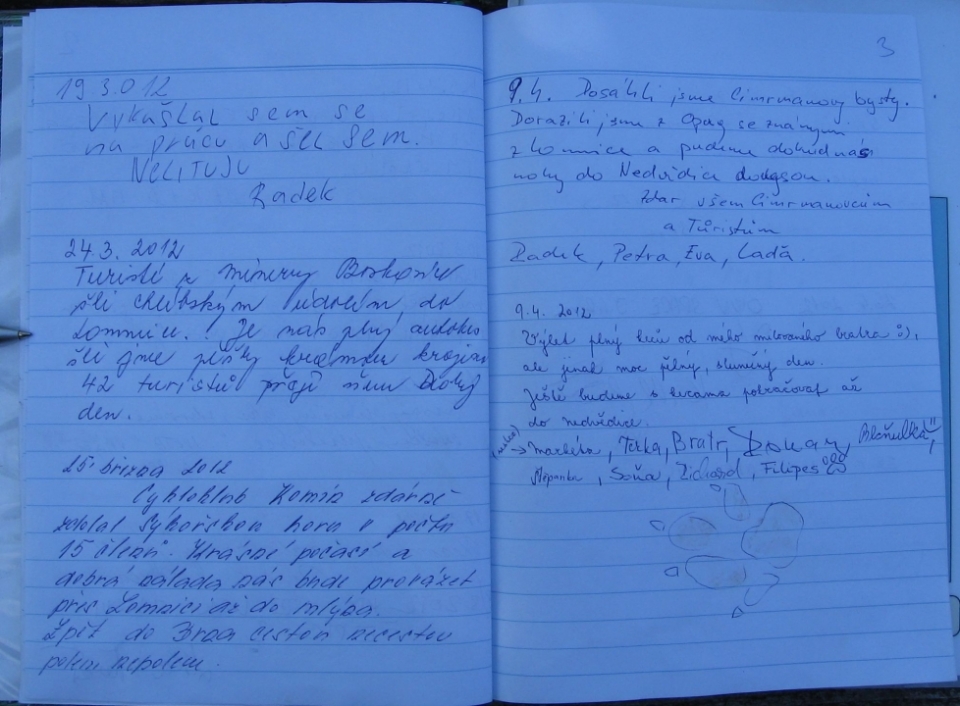 19 3.012
Vykašlal sem se
na prácu a šel sem.
NELITUJU
Radek
24.3. 2012
Turisté z Minervy Boskovice
šli chlébským údolím do
Lomnice. Je nás plný autobus
šli jsme pěšky krásnou krajinou
42 turistů přejí všem Dobrý
den.
25. března 2012
Cykloklub Komín zdárně
zdolal Sýkořskou horu v počtu
15 členů. Krásné počasí a
dobrá nálada nás bude provázet
přes Lomnici až do mlýna.
Zpět do Brna cestou necestou
polem nepolem.
3
9.4. Dosáhli jsme Cimrmanovy bysty.
Dorazili jsme z Opav se známými
z Lomnice a pudeme dohodnás
nohy do Nedvědice
Zdar všem Cimrmanovcům
a Tůristům
Radek, Petra, Eva, Laďa.
9.4. 2012
Výlet plný keců od mého milovaného bratra :),
ale jinak moc pěkný, slunečný den.
Ještě budeme s kecama pokračovat až
do nedvědice.
Markéta, Terka, Bratr,
Štěpánka, Soňa, Filipes